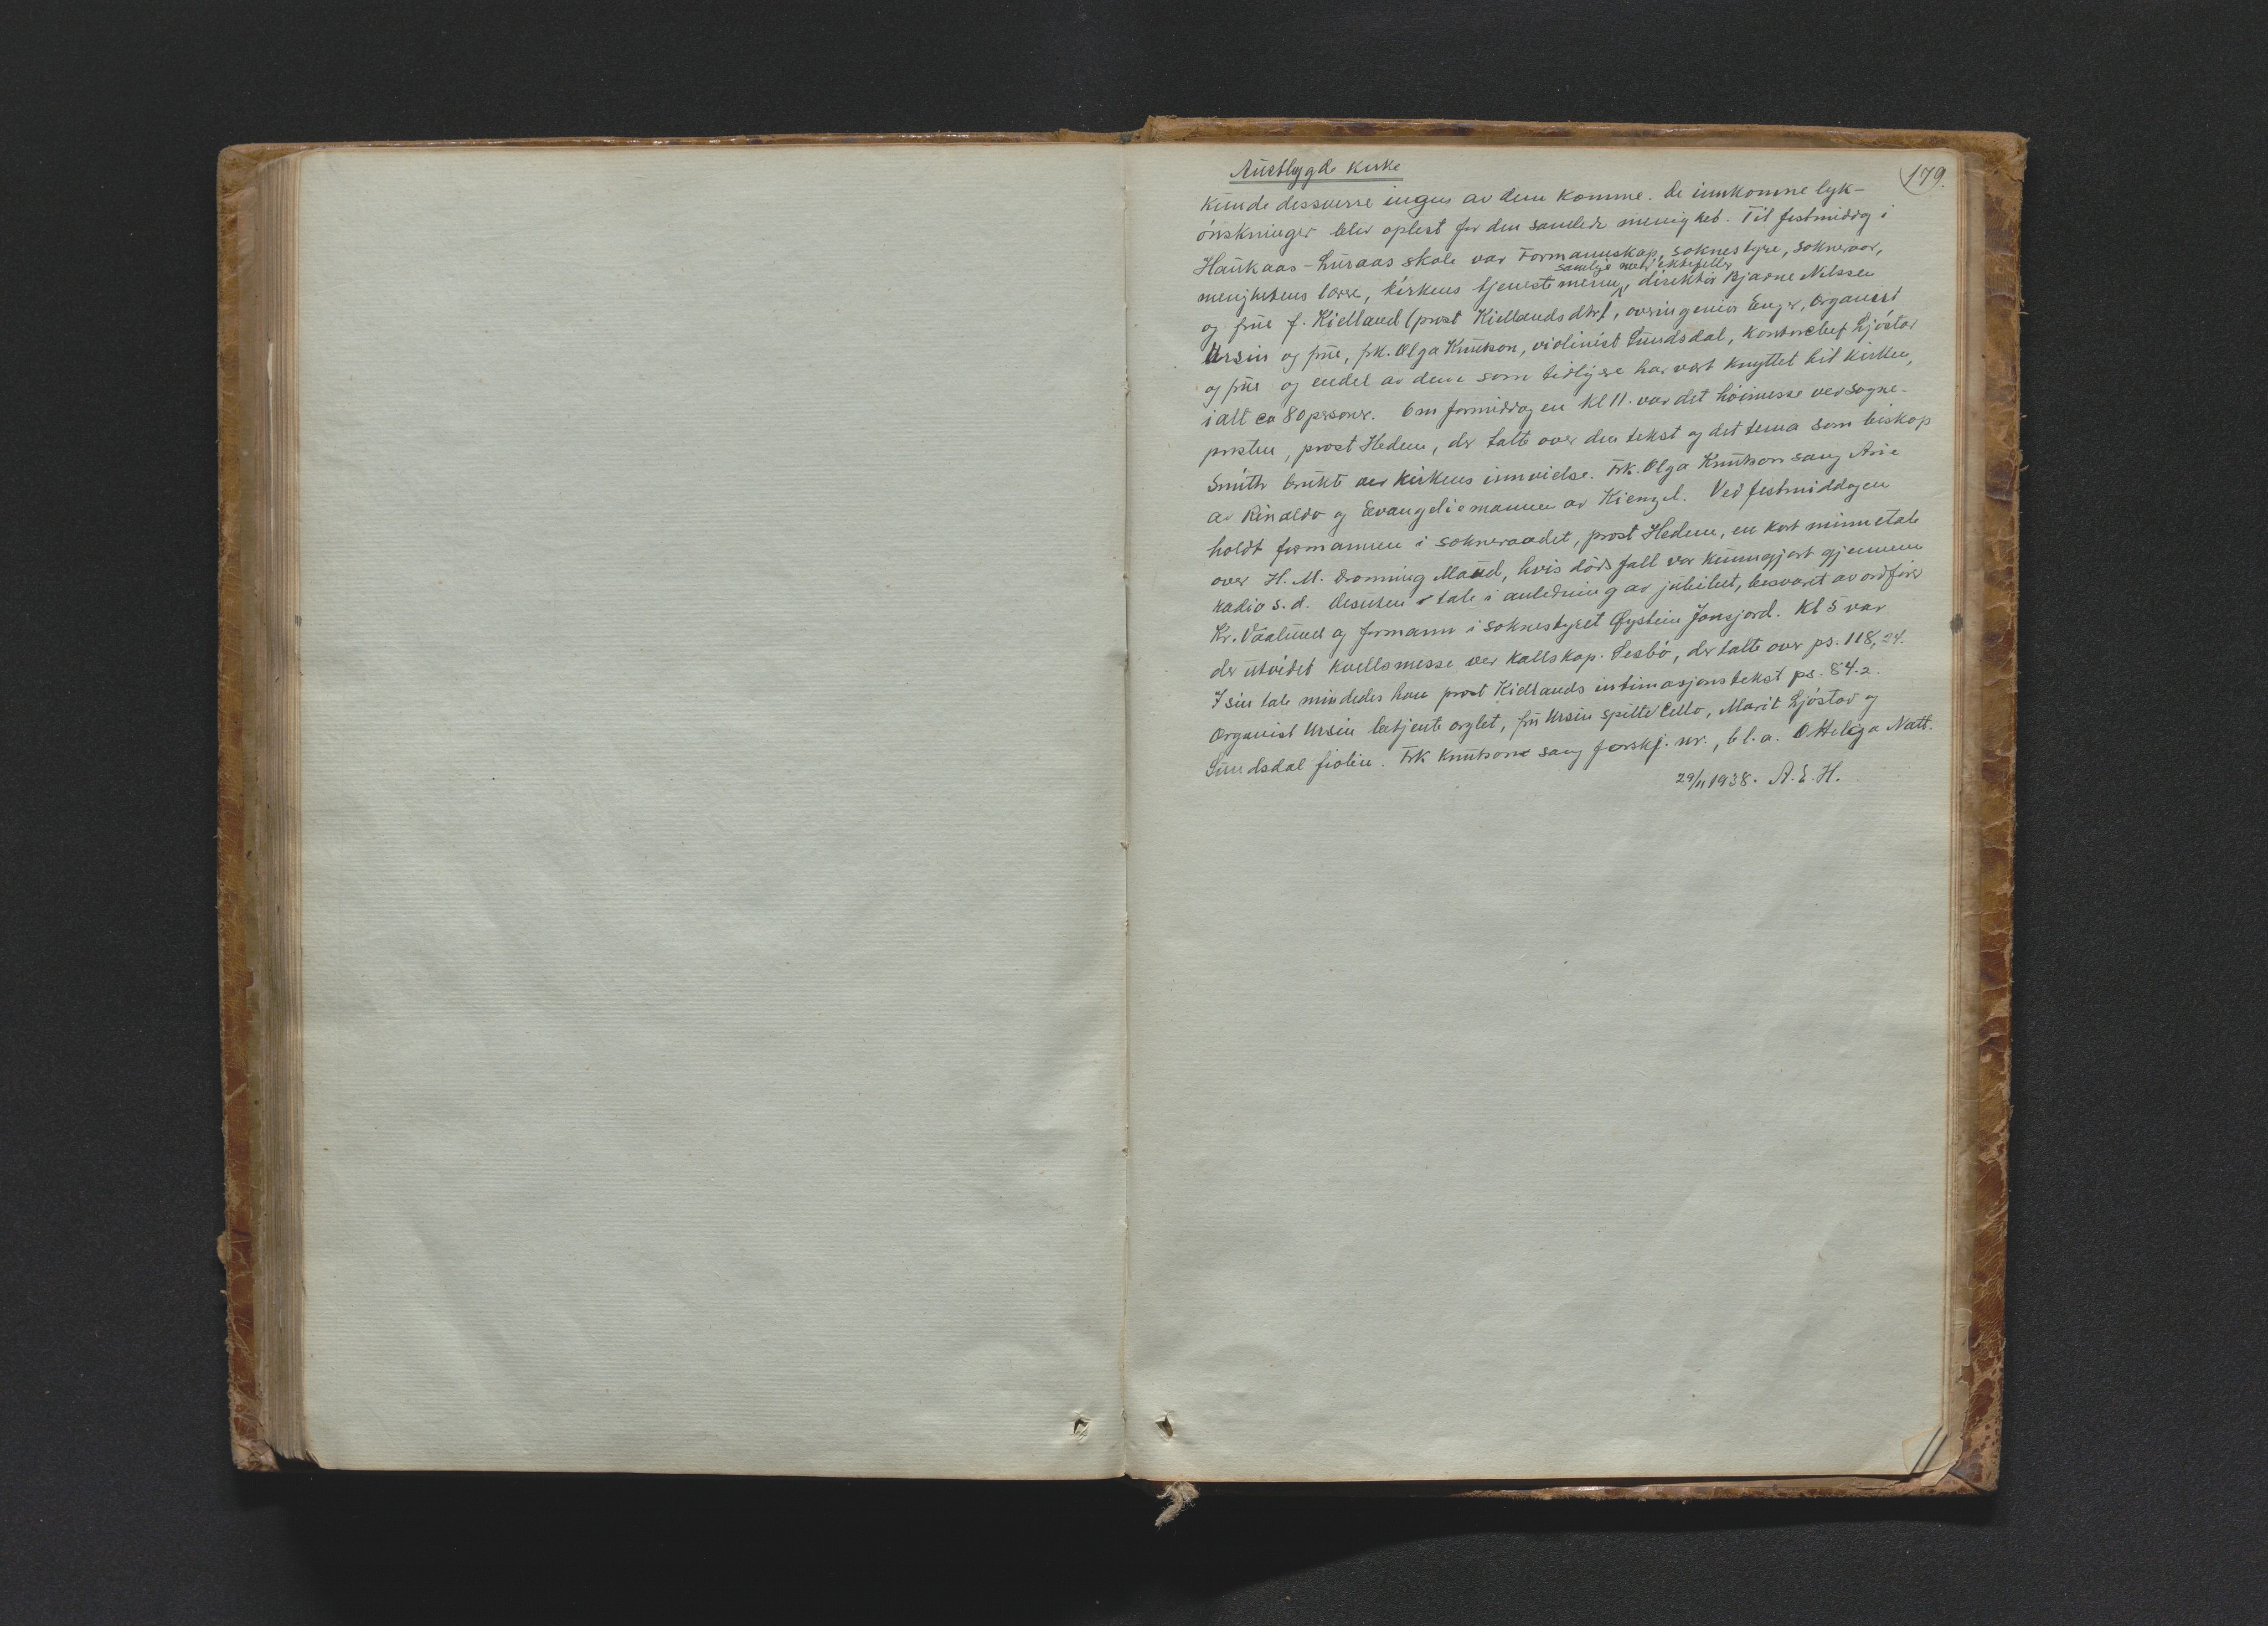 Austbygde kirke
179.
kunde dessverre ingen av dem komme. De innkomne lyk-
ønskninger blev oplest for den samlede menighet. Til festmiddag i
Haukaas-Luraas skole var Formannskap, soknestyre, sokneraad,
samtlige med ektefeller
menighetens lærere, kirkens tjenestemenn, direktør Bjarne Nilssen
og frue f. Kielland (prost Kiellands dtr), overingeniør Enger, Organist
Ursin og frue, frk. Olga Knutson, violinist Sundsdal, kontorchef Ljøstad
og frue og endel av dem som tidligere har vært knyttet til kirken,
ialt ca 80 personer. Om formiddagen kl 11. var det høimesse ved sogne-
presten, prost Hedem, der talte over den tekst og det tema som biskop
Smith brukte ved kirkens innvielse. Frk. Olga Knutson sang Arie
av Rinaldo og Evangeliemannen av Kienzel. Ved festmiddagen
holdt formannen i sokneraadet, prost Hedem, en kort minnetale
over H. M. Dronning Maud, hvis dødsfall var kunngjort gjennem
radio s.d. Desuten tale i anledning av jubileet, besvaret av ordfører
Kr. Vaalund og formann i soknestyret Øystein Jonsjord. Kl 5 var
der utvidet kveldsmesse ved kallskap. Sesbø, der talte over ps. 118,24.
I sin tale mindedes han prost Kiellands intimasjonstekst ps. 84.2.
Organist Ursin betjente orglet, fru Ursin spilte Cello, Marit Ljøstad og
Sundsdal fiolin. Frk Knutson sang forskj. nr., bl.a. O Helliga Natt.
29/11 1938. A. E. H.